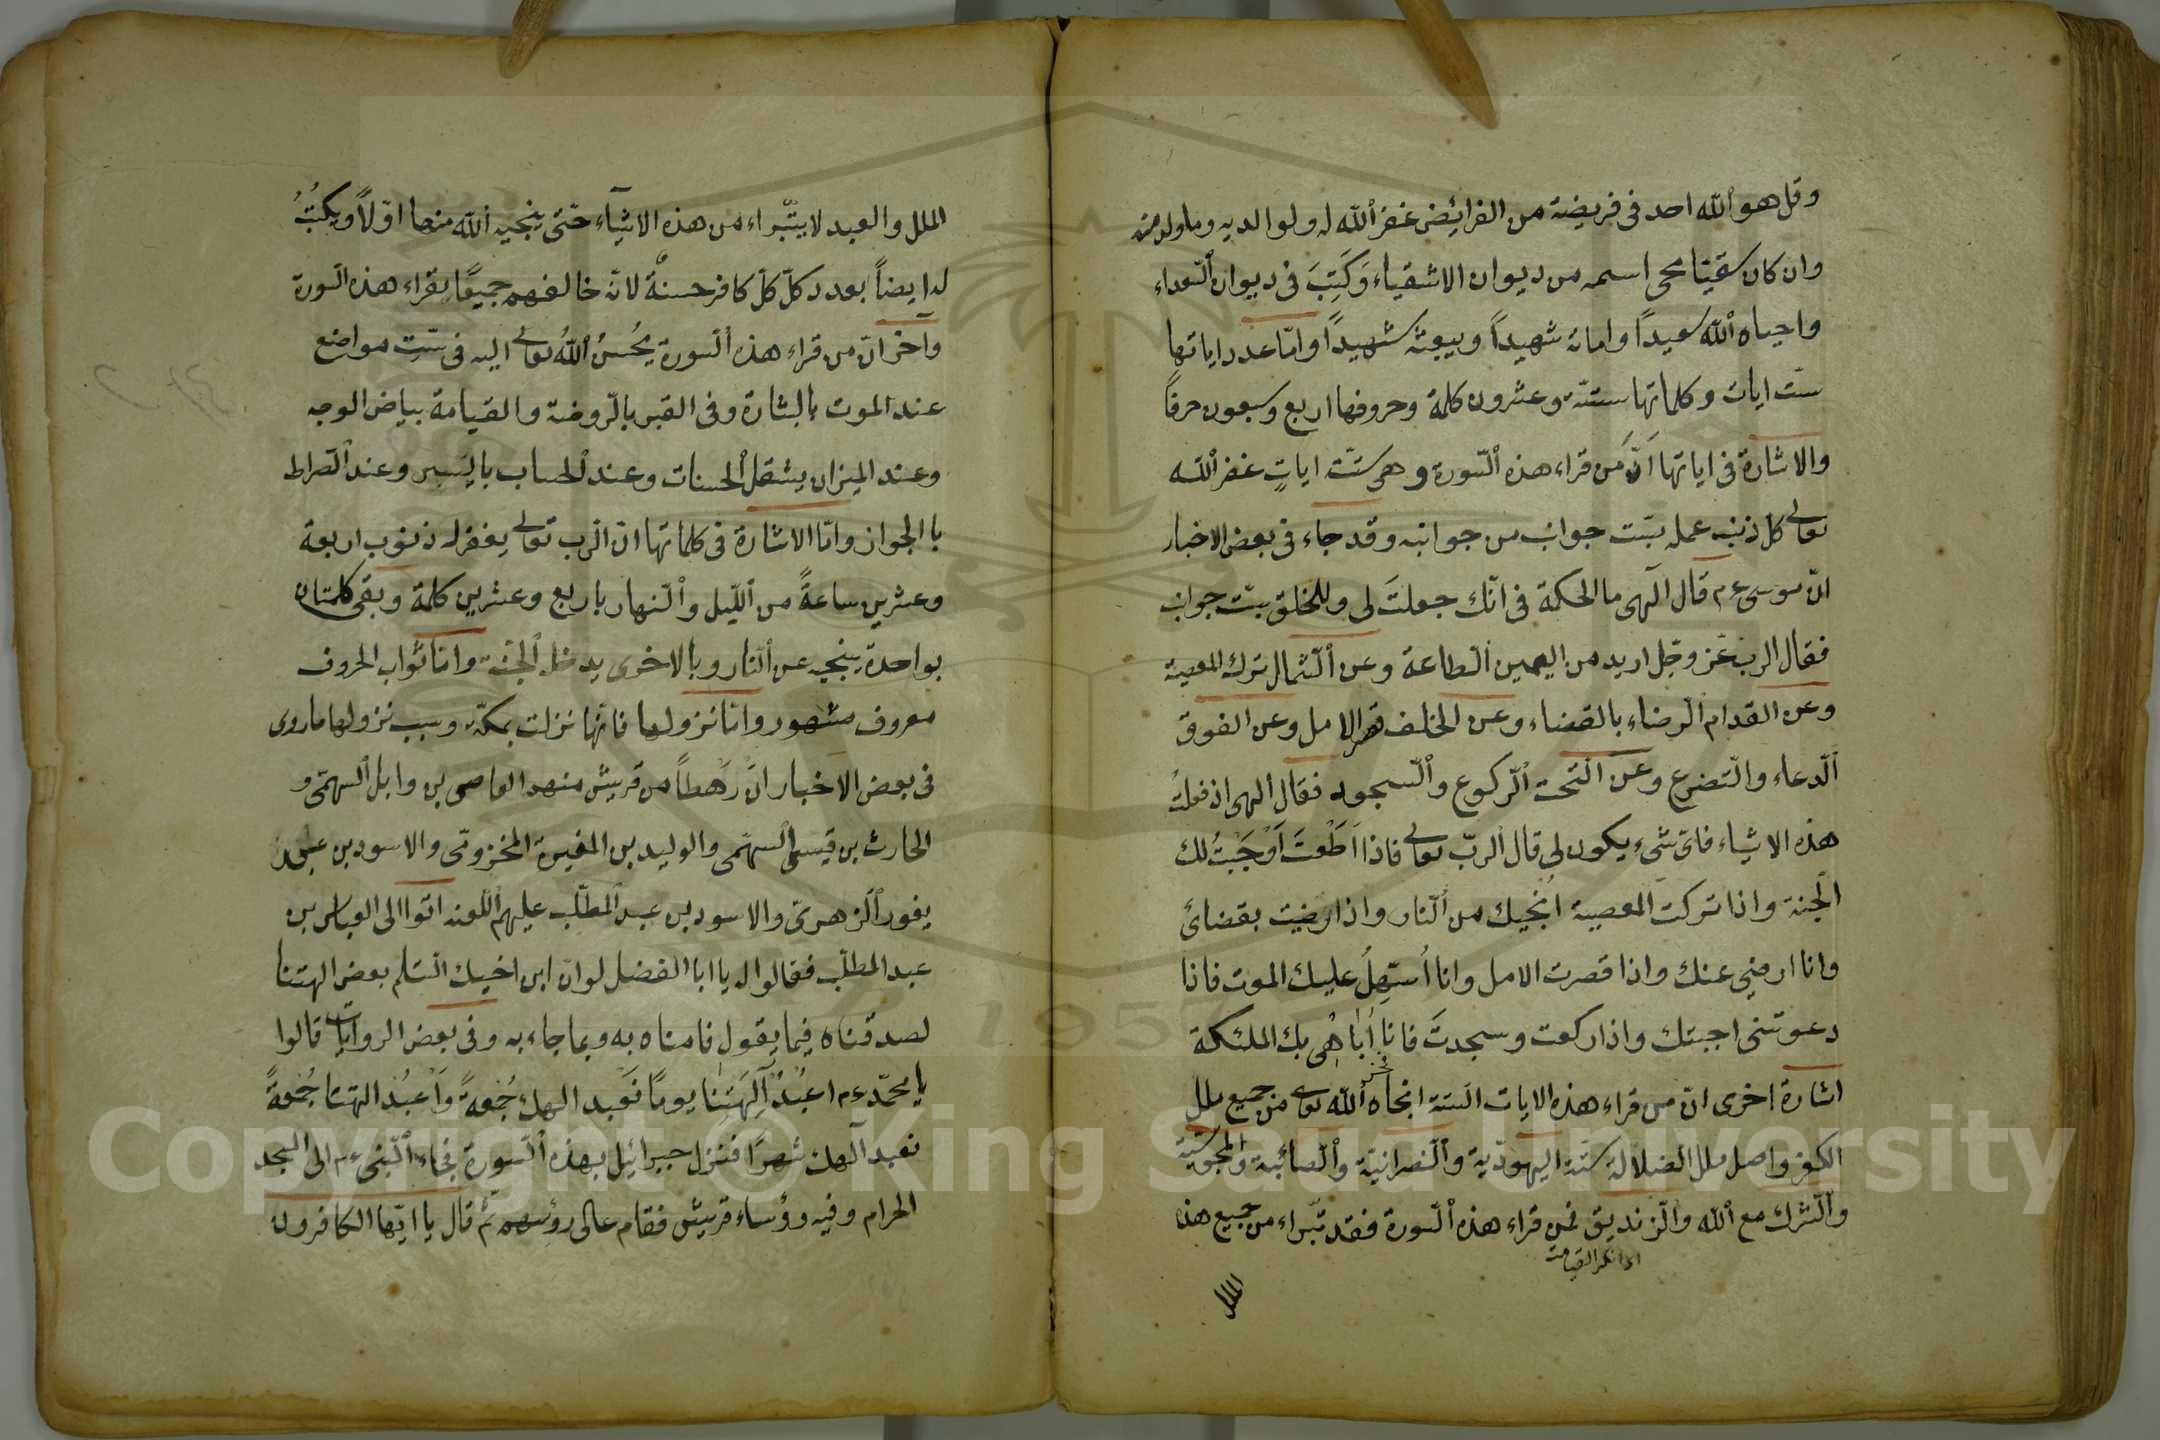 وقل هو الله احد فى فريضة من الفرائض غفر الله له ولوالديه وما ولد منه
وان كان شقيّا محى اسمه من ديوان الاشقياء وَكُتِبَ فى ديوان السّعداء
واحياه الله سعيداً واماته شهيداً ويبعثه شهيداً وامّا عدد اياتها
ستّ ايات وكلماتها ستّة وعشرون كلمة وحروفها اربع وسبعون حرفاً
والاشارة فى اياتها اَنَّ مَن قراء هذه السّورة وهى ستّة اياتٍ غفر الله
تعالى كل ذنب عمله بستّ جوانب من جوانبه وقد جاء فى بعض الاخبار
انّ موسى ءم قال الهى ما الحكمة فى انّك جعلتَ لى وللخلق ستّ جوانب
فقال الرب عزّ وجّل اريد من اليمين الطاعة وعن الشّمال ترك المعصية
وعن القدام الرضاء بالقضاء وعن الخلف قصر الامل وعن الفوق
الدّعاء والتّضرع وعن التحت الرّكوع والسّجود فقال الهى اذ فعلتُ
هذه الاشياء فاىّ شىء يكون لى قال الربّ تعالى فاذا اَطَعْتَ اَوْجَبْتُ لك
الجنة واذا تركت المعصية اُنجيك من النّار واذا رضيت بقضائ
وانا ارضى عنك واذا قصرت الامل وانا اُسَهِّلُ عليك الموت فاذا
دعوتنى اجبتك واذا ركعت وسجدتَ فانا اُبَاهِى بك الملئكة
اشارة اخرى انّ من قراء هذه الايات السّتة انجاه الله تعالى من جميع ملل
الكفر واصل ملل الضلالة ستّة اليهوديّة والنّصرانيّة والصّائبة والمجوسيّة
والشّرك مع الله والزّنديق فمن قراء هذه السّورة فقد تبّراء من جميع هذا
الملل
الملل والعبد لا يتبّراء من هذه الاشيآء حتّى ينجيه الله منها اوّلاً ويكتُبُ
له ايضاً بعدد كلّ كل كافر حسنةٌ لانّه خالفهم جميعًا بقراء هذه السّورة
وآخر انّ من قراء هذه السّورة يُحْسِنُ اللهُ تعالى اليه فى ستّ مواضع
عند الموت بالبشارة وفى القبر بالرّوضة والقيامة ببياض الوجه
وعند الميزان يثقل الحسنات وعند الحساب باليسير وعند الصّراط
با الجواز وامّا الاشارة فى كلماتها انّ الرّب تعالى يغفر له ذنوب اربعة
وعشرين ساعةً من اللّيل والنّهار باربع وعشرين كلمة وبقى كلمتان
بواحدة ينجيه عن النّار وبالاخرى يدخل الجنّة وامّا ثواب الحروف
معروف مشهور وامّا نزولها فانّها نزلت بمكّة وسبب نزولها ماروى
فى بعض الاخبار انّ رَهْطاً من قريش منهم العاصى بن وابل السهمّى و
الحارث بن قيس السهمّى والوليد بن المغيرة المخزومّى والاسود بن عبد
يغور الزهرىّ والاسود بن عبد المطلّب عليهم اللّعنه اتوا الى العباس بن
عبد المطلّب فقالوا له يا ابا الفضل لو انّ ابن اخيك استلم بعض الهتنا
لصدقناه فيما يقول فامناه به وبما جاء به وفى بعض الروايات قالوا
يا محمّد ءم اعبُدْ آلِهَتِنا يومًا نَعبد الهك جُمعةً وَاَعْبُد الهتنا جُمعةً
نعبد آلهك شهرًا فنزل جبرائيل بهذه السّورة فجاء النّبى ءم الى المسجد
الحرام وفيه رؤساء قريش فقام عالى رؤسهم ثمّ قال يا ايّها الكافرون
Copyright © King Saud University